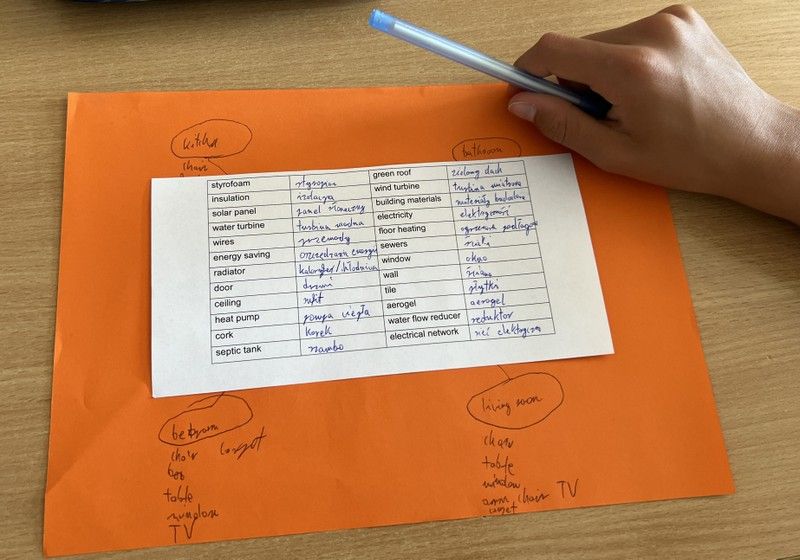 kitchen
chair
bathroom
styrofoam styropian green roof zielony dach
insulation izolacja wind turbine turbina wiatrowa
solar panel panel słoneczny building materials materiały budowlane
water turbine turbina wodna electricity
wires przewody floor heating ogrzewanie podłogowe
energy saving oszczędzanie energii sewers
radiator kaloryfer/chłodnica window okno
door drzwi wall ściana
ceiling sufit tile płytki
heat pump pompa ciepła aerogel aerogel
cork korek water flow reducer reduktor
septic tank szambo electrical network sieć elektryczna
bedroom
chair carpet
table
TV
living room
chair
table
window
arm chair TV